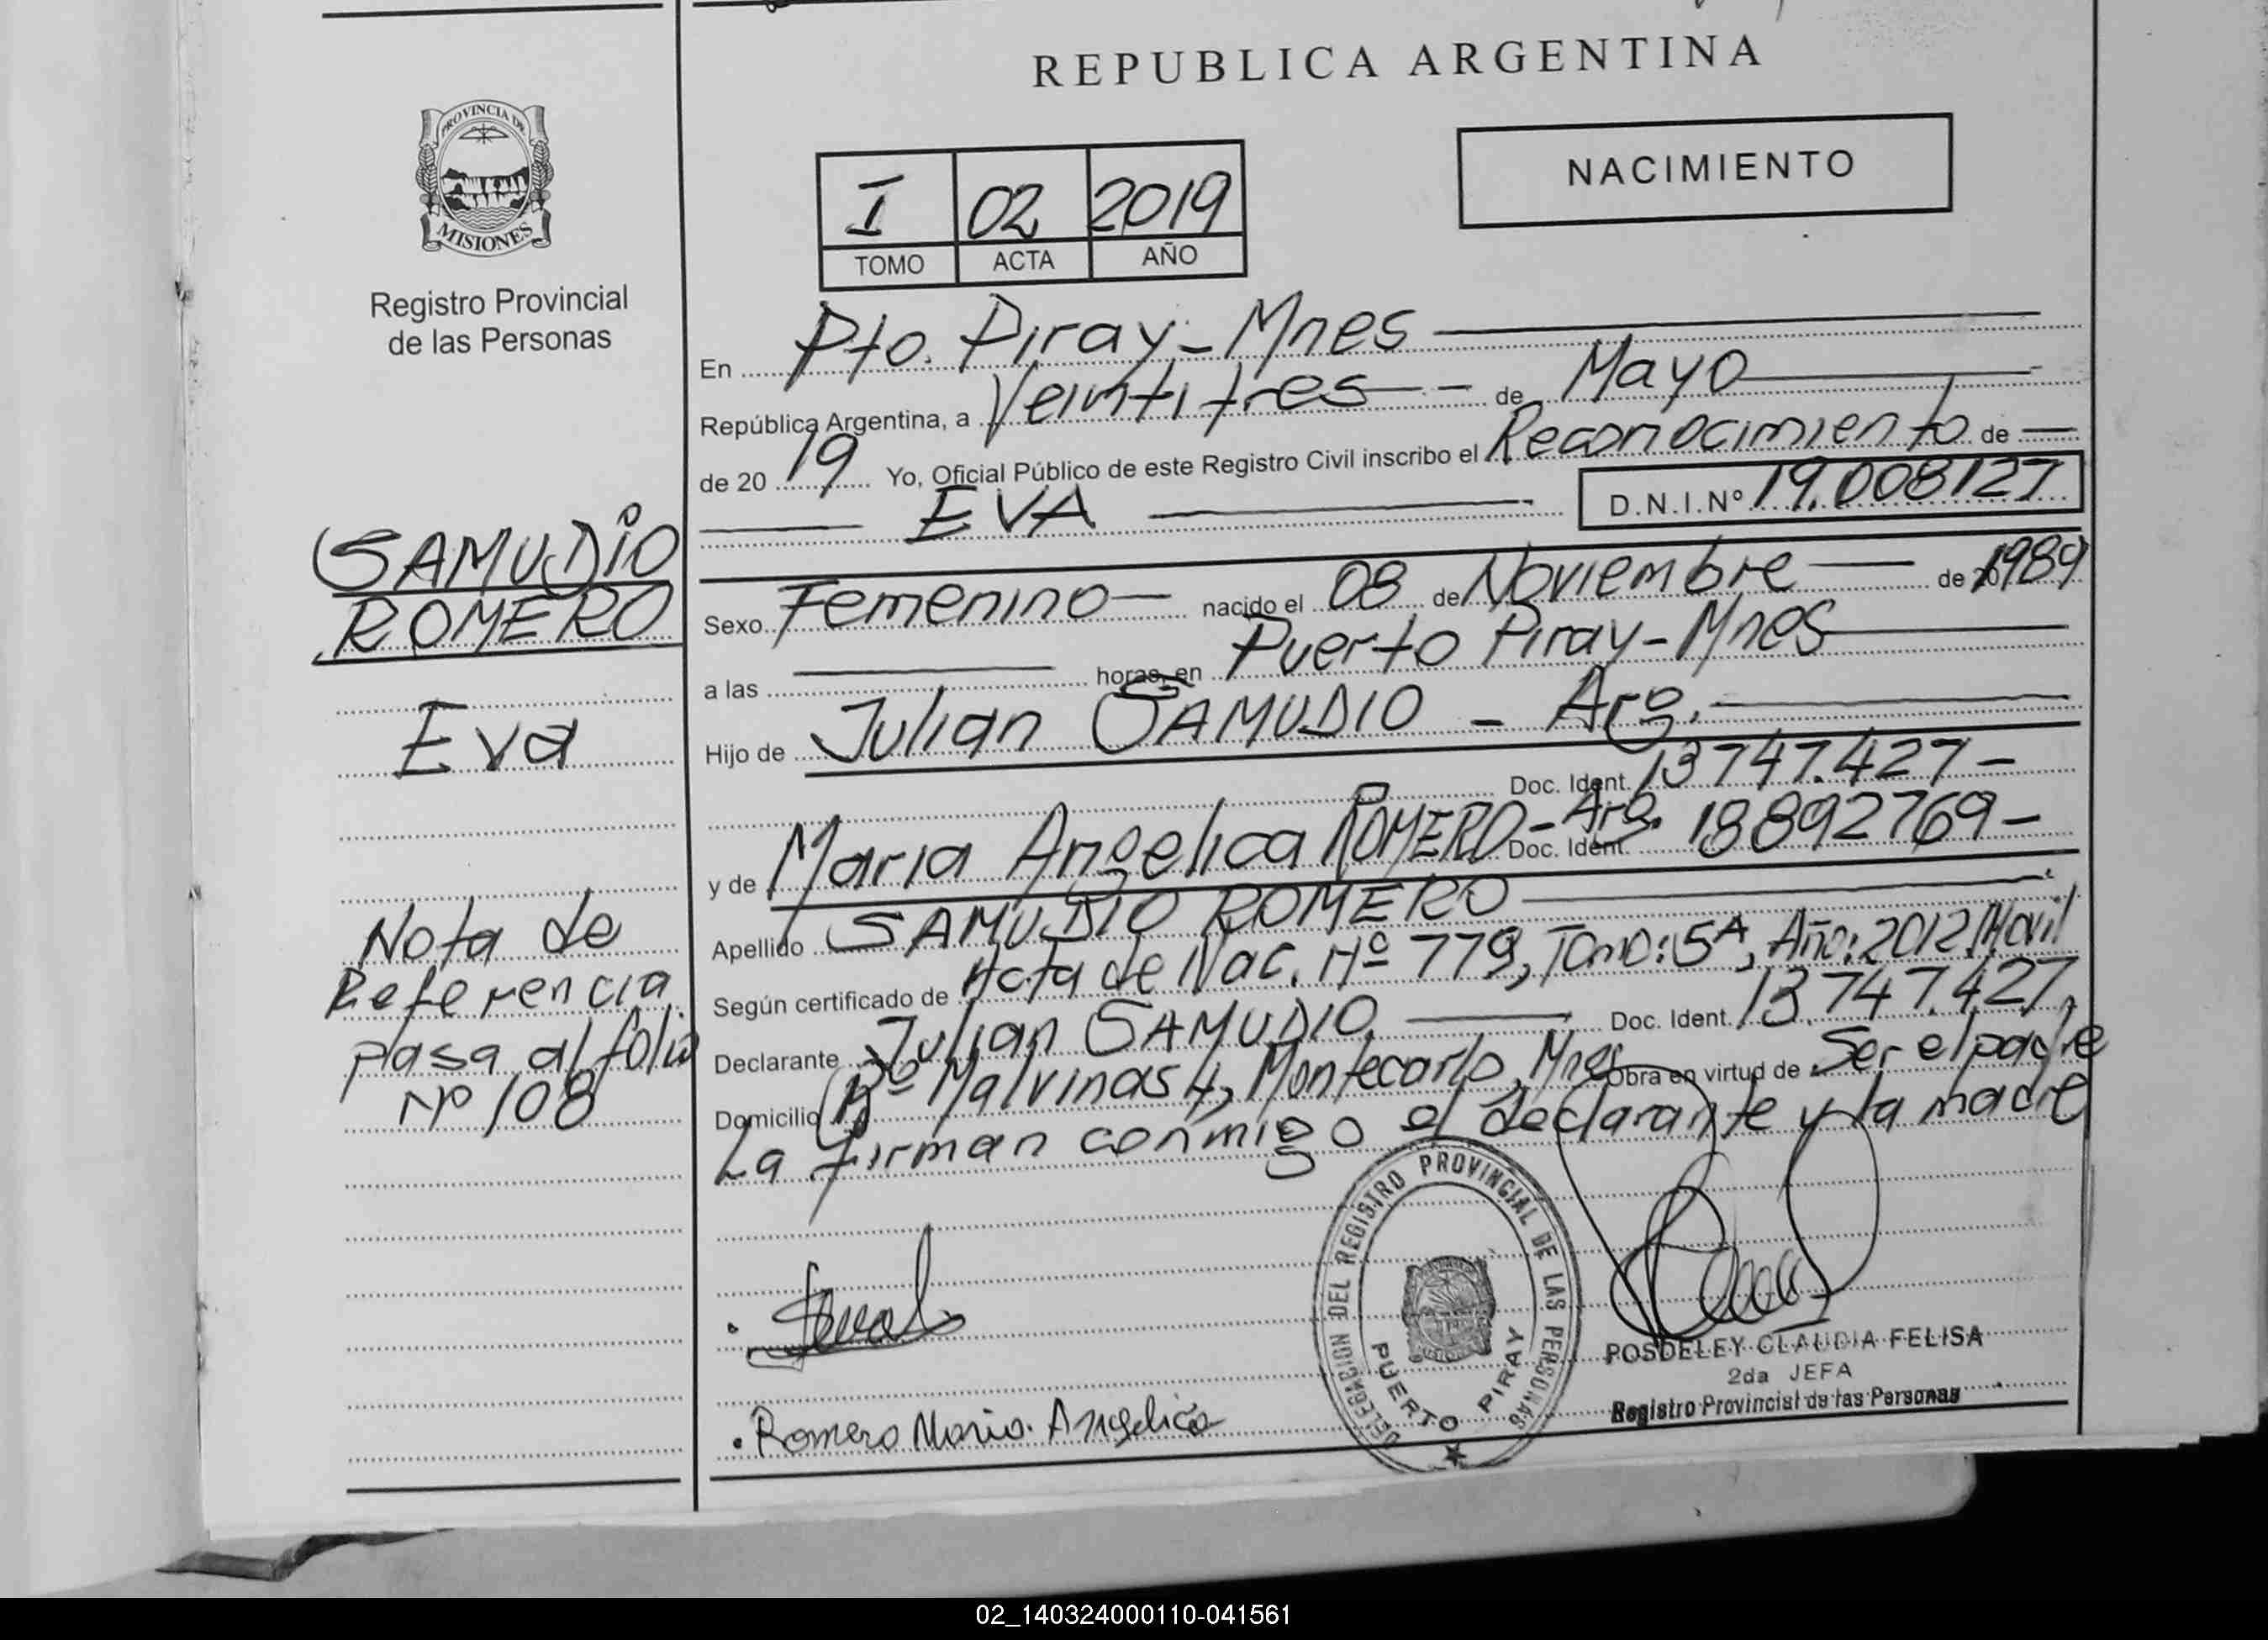 REPUBLICA ARGENTINA
PROVINCIA DE
MISIONES
Registro Provincial
de las Personas
NACIMIENTO
I 02 2019
TOMO ACTA AÑO
En Pto. Piray - Mnes
República Argentina, a Veintitres de Mayo
de 20 19 Yo, Oficial Público de este Registro Civil inscribo el Reconocimiento de
EVA D.N.I.Nº 19.008127
SAMUDIO
ROMERO
Eva
Nota de
Referencia
pasa al folio
Nº 108
Sexo Femenino nacido el 08 de Noviembre de 1989
a las horas, en Puerto Piray - Mnes
Hijo de Julian SAMUDIO - Arg.
Doc. Ident. 13747.427 -
y de Maria Angelica ROMERO - Arg. Doc. Ident. 18892769 -
Apellido SAMUDIO ROMERO
Según certificado de Acta de Nac. Nº 779, Tomo: 5A, Año: 2012 Movil
Declarante Julian SAMUDIO. Doc. Ident. 13.747.427,
Domicilio Bº Malvinas 4, Montecarlo, Mnes Obra en virtud de Ser el padre
La firman conmigo el declarante y la madre
DELEGACION DEL REGISTRO PROVINCIAL DE LAS PERSONAS
PUERTO PIRAY
POSDELEY CLAUDIA FELISA
2da JEFA
Registro Provincial de las Personas
Romero Maria Angelica
02_140324000110-041561